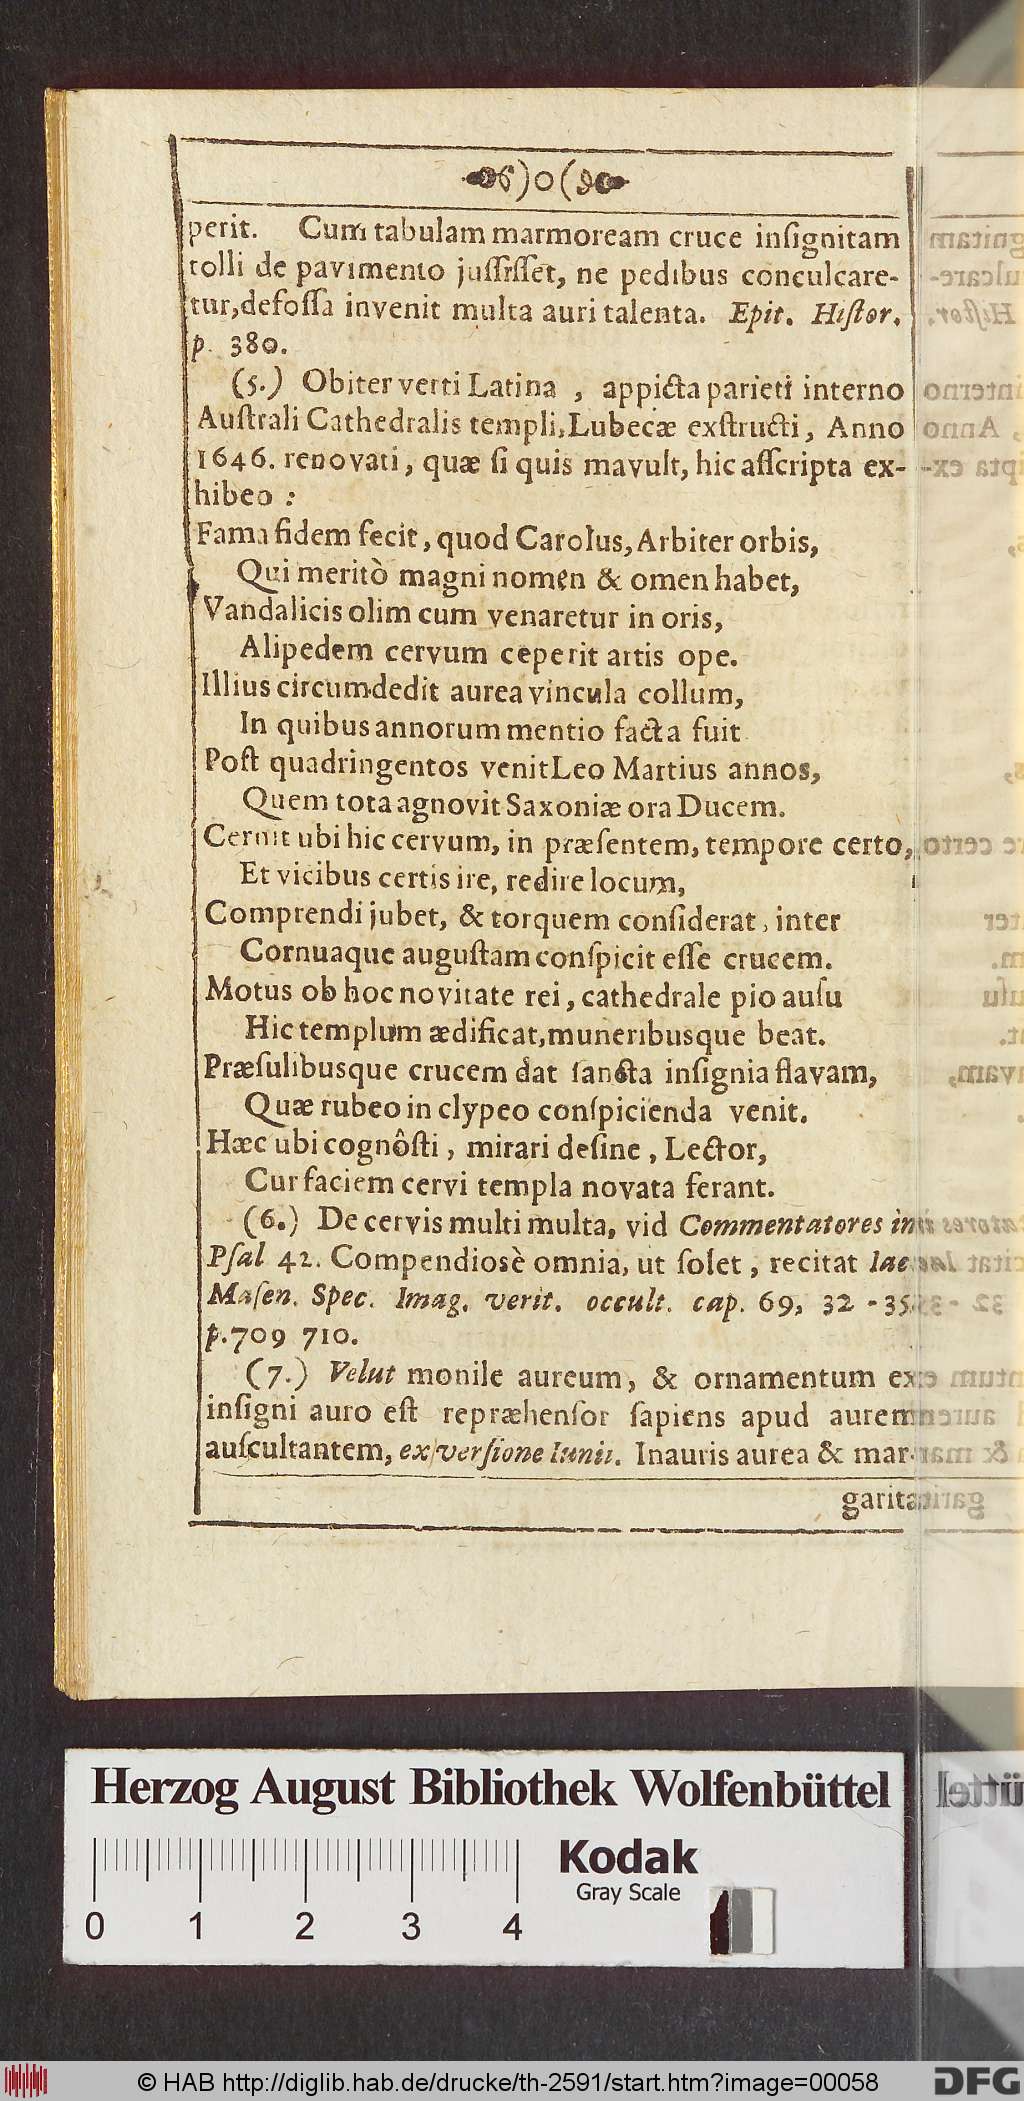 )o(
perit. Cum tabulam marmoream cruce inſignitam
tolli de pavimento juſſiſſet, ne pedibus conculcare-
tur, defoſſa invenit multa auri talenta. Epit. Hiſtor.
p. 380.
(5.) Obiter verti Latina , appicta parieti interno
Auſtrali Cathedralis templi, Lubecæ exſtructi, Anno
1646. renovati, quæ ſi quis mavult, hic aſſcripta ex-
hibeo :
Fama fidem fecit, quod Carolus, Arbiter orbis,
Qui meritò magni nomen & omen habet,
Vandalicis olim cum venaretur in oris,
Alipedem cervum ceperit artis ope.
Illius circumdedit aurea vincula collum,
In quibus annorum mentio facta fuit
Poſt quadringentos venit Leo Martius annos,
Quem tota agnovit Saxoniæ ora Ducem.
Cernit ubi hic cervum, in præſentem, tempore certo,
Et vicibus certis ire, redire locum,
Comprendi jubet, & torquem conſiderat, inter
Cornuaque auguſtam conſpicit eſſe crucem.
Motus ob hoc novitate rei, cathedrale pio auſu
Hic templum ædificat, muneribusque beat.
Præſulibusque crucem dat ſancta inſignia flavam,
Quæ rubeo in clypeo conſpicienda venit.
Hæc ubi cognôſti, mirari deſine, Lector,
Cur faciem cervi templa novata ferant.
(6.) De cervis multi multa, vid Commentatores in
Pſal 42. Compendiosè omnia, ut ſolet, recitat Iac.
Maſen. Spec. Imag. verit. occult. cap. 69, 32 - 35.
p. 709 710.
(7.) Velut monile aureum, & ornamentum ex
inſigni auro eſt repræhenſor ſapiens apud aurem
auſcultantem, ex verſione Iunii. Inauris aurea & mar-
garita
Herzog August Bibliothek Wolfenbüttel
Kodak
Gray Scale
0 1 2 3 4
© HAB http://diglib.hab.de/drucke/th-2591/start.htm?image=00058
DFG